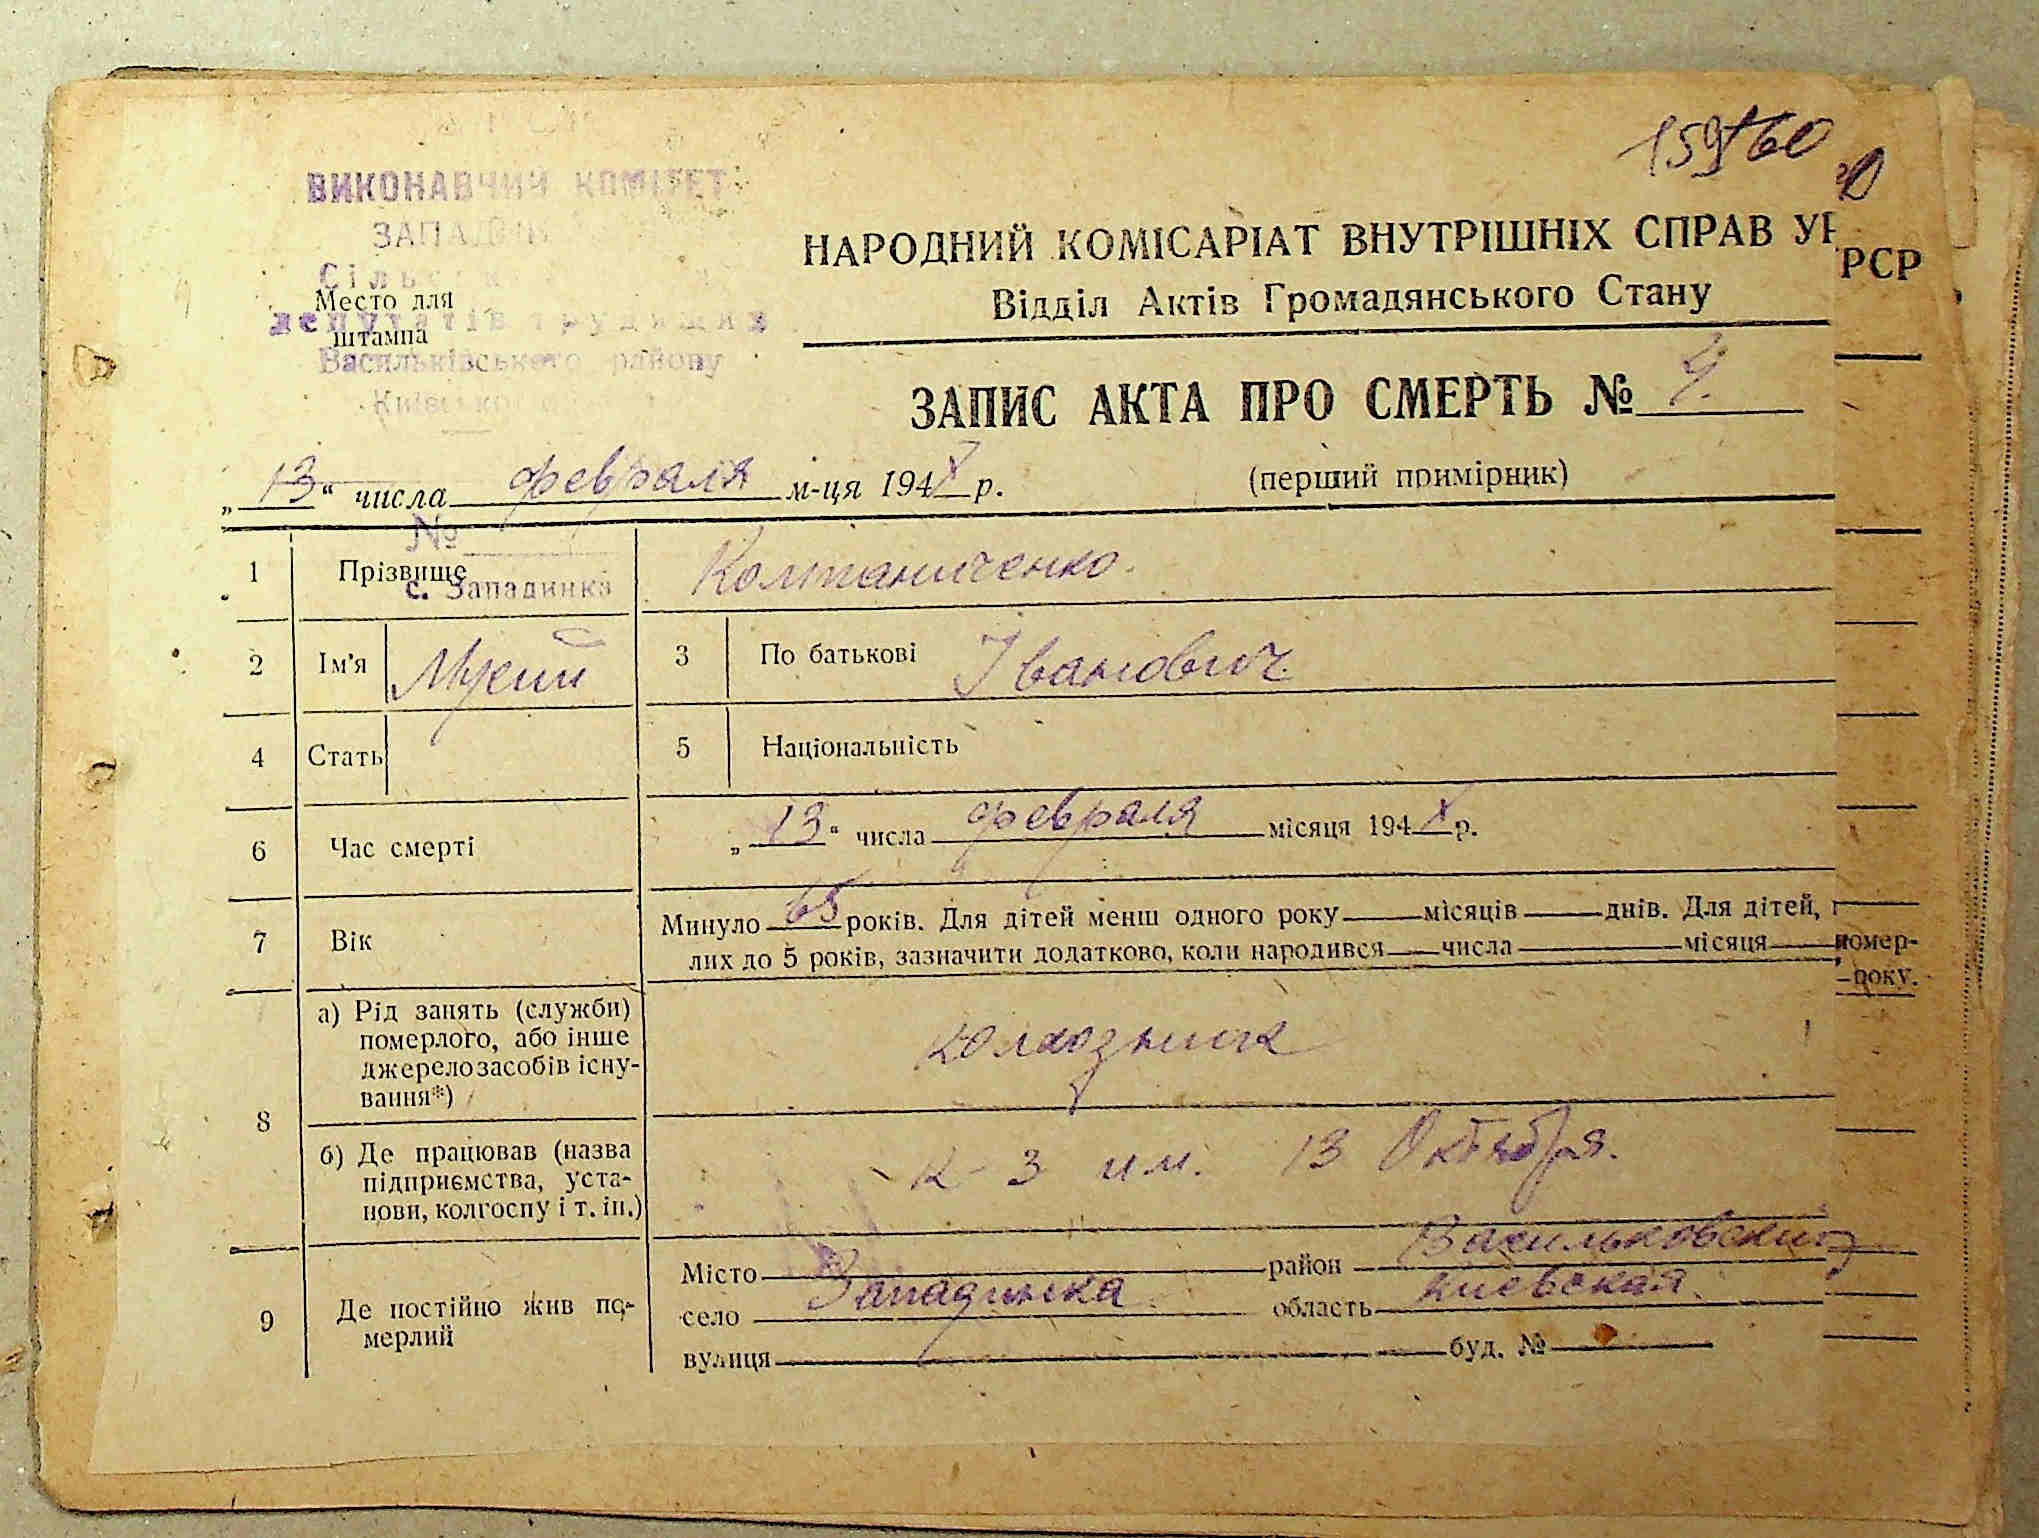 159 160
ВИКОНАВЧИЙ КОМІТЕТ
НАРОДНИЙ КОМІСАРІАТ ВНУТРІШНІХ СПРАВ УР
РСР
Місто для
штампа
депутатів трудящих
Відділ Актів Громадянського Стану
Васильківського району
ЗАПИС АКТА ПРО СМЕРТЬ №
„13“ числа февраля м-ця 194 р.
(перший примірник)
№
1 Прізвище
с. Западинка
2 Ім'я
3 По батькові Іванович.
4 Стать
5 Національність
6 Час смерті „13“ числа февраля місяця 194 р.
7 Вік Минуло 65 років. Для дітей менш одного року місяців днів. Для дітей,
помер-
лих до 5 років, зазначити додатково, коли народився числа місяця
року.
8 а) Рід занять (служби)
померлого, або інше
джерело засобів існу-
вання*)
колхозник
б) Де працював (назва
підприємства, уста-
нови, колгоспу і т. ін.)
к-з им. 13 Октября.
9 Де постійно жив по-
мерлий
Місто район Васильковский
село Западинка область Киевская.
вулиця буд. №